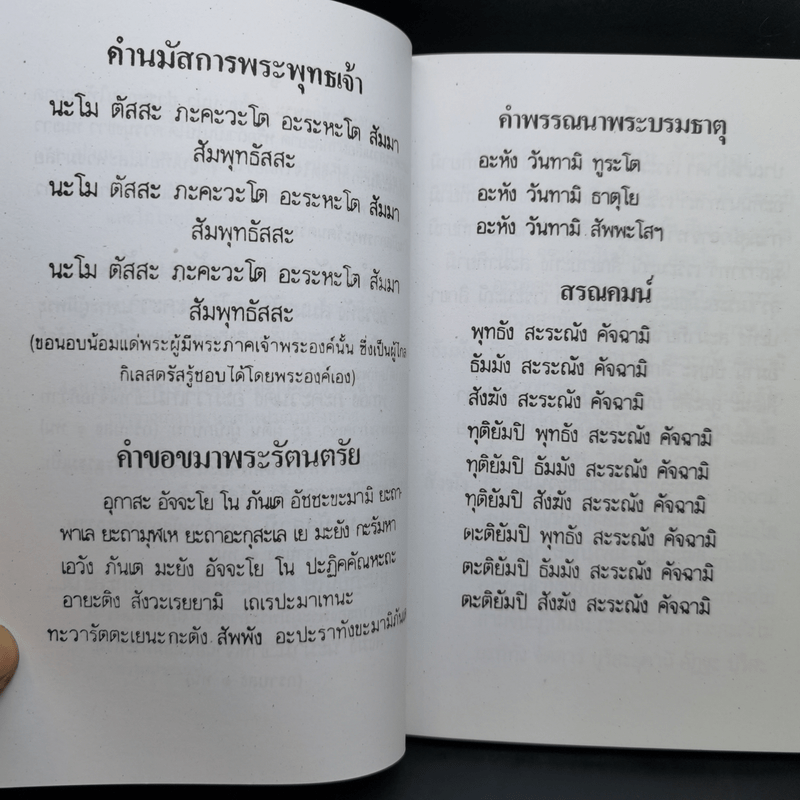 คำนมัสการพระพุทธเจ้า
นะโม ตัสสะ ภะคะวะโต อะระหะโต สัมมา
สัมพุทธัสสะ
นะโม ตัสสะ ภะคะวะโต อะระหะโต สัมมา
สัมพุทธัสสะ
นะโม ตัสสะ ภะคะวะโต อะระหะโต สัมมา
สัมพุทธัสสะ
(ขอนอบน้อมแด่พระผู้มีพระภาคเจ้าพระองค์นั้น ซึ่งเป็นผู้ไกล
กิเลสตรัสรู้ชอบได้โดยพระองค์เอง)
คำขอขมาพระรัตนตรัย
อุกาสะ อัจจะโย โน ภันเต อัชชะขะมามิ ยะถา-
พาเล ยะถามุฬเห ยะถาอะกุสะเล เย มะยัง กะรัมหา
เอวัง ภันเต มะยัง อัจจะโย โน ปะฏิคคัณหะถะ
อายะติง สังวะเรยยามิ เถเรปะมาเทนะ
ทะวารัตตะเยนะกะตัง สัพพัง อะปะราทังขะมามิภันเต
คำพรรณนาพระบรมธาตุ
อะหัง วันทามิ ทูระโต
อะหัง วันทามิ ธาตุโย
อะหัง วันทามิ สัพพะโสฯ
สรณคมน์
พุทธัง สะระณัง คัจฉามิ
ธัมมัง สะระณัง คัจฉามิ
สังฆัง สะระณัง คัจฉามิ
ทุติยัมปิ พุทธัง สะระณัง คัจฉามิ
ทุติยัมปิ ธัมมัง สะระณัง คัจฉามิ
ทุติยัมปิ สังฆัง สะระณัง คัจฉามิ
ตะติยัมปิ พุทธัง สะระณัง คัจฉามิ
ตะติยัมปิ ธัมมัง สะระณัง คัจฉามิ
ตะติยัมปิ สังฆัง สะระณัง คัจฉามิ